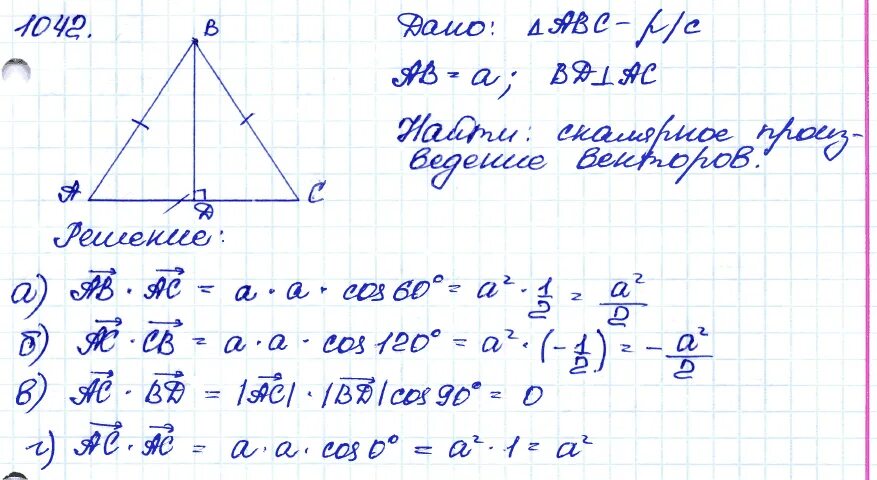 1042.
B
A
D
C
Дано: △ABC - р/с
AB = a; BD⊥AC
Найти: скалярное произ-
ведение векторов.
Решение:
а) AB⃗ · AC⃗ = a · a · cos 60° = a² · 1/2 = a²/2
б) AC⃗ · CB⃗ = a · a · cos 120° = a² · (-1/2) = -a²/2
в) AC⃗ · BD⃗ = |AC⃗| · |BD⃗| cos 90° = 0
г) AC⃗ · AC⃗ = a · a · cos 0° = a² · 1 = a²